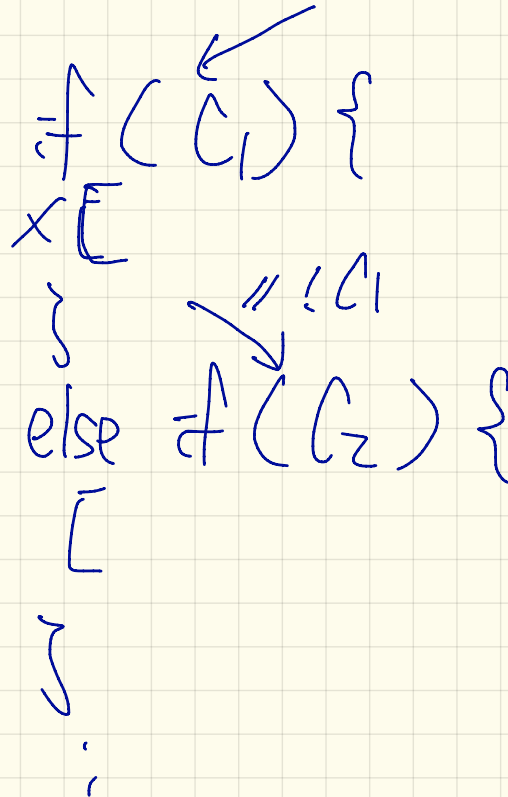 if (C1) {
x [
}
// !C1
else if (C2) {
[
}
: